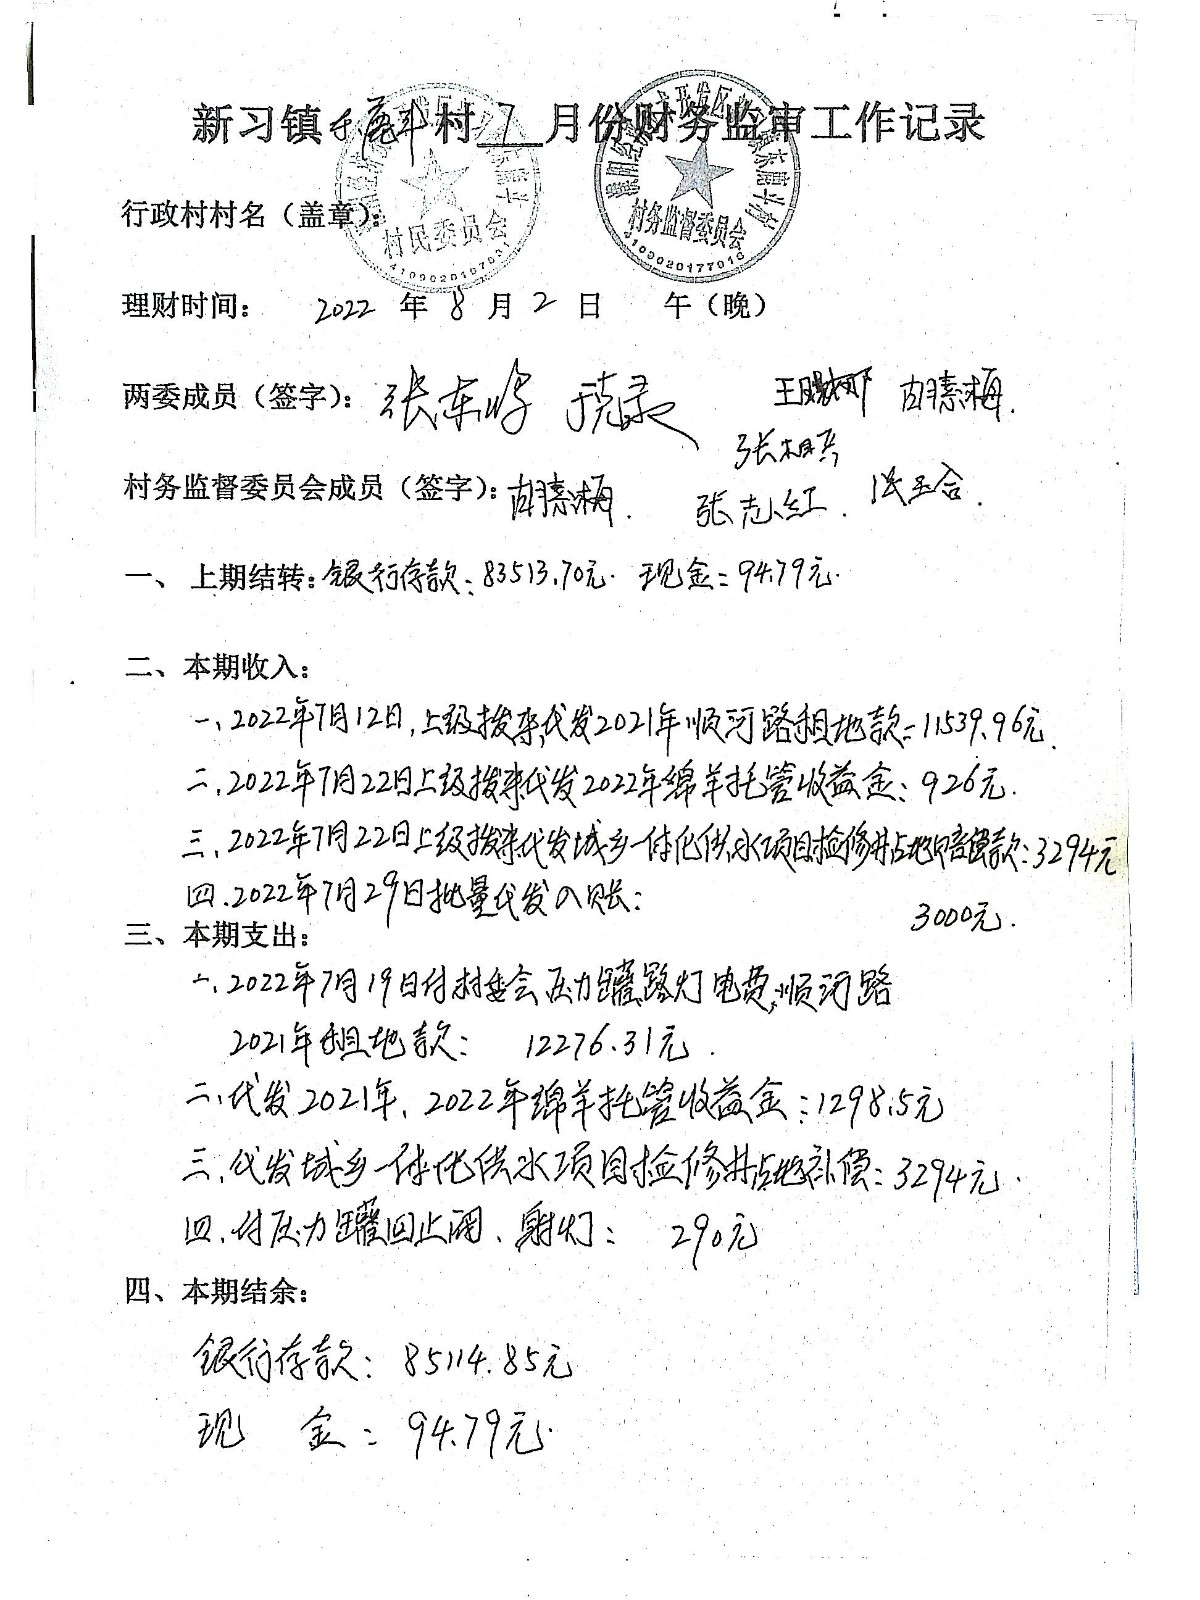 新习镇东庙斗村 7 月份财务监审工作记录
行政村村名（盖章）：
村民委员会
村务监督委员会
4100020177016
理财时间： 2022 年 8 月 2 日 午（晚）
两委成员（签字）：张东 胡素梅.
张相兵
村务监督委员会成员（签字）：胡素梅. 张志红. 张玉合.
一、上期结转：银行存款：83513.70元. 现金：94.79元.
二、本期收入：
一、2022年7月12日，上级拨来代发2021年顺河路租地款：11539.96元.
二、2022年7月22日上级拨来代发2022年绵羊托管收益金：926元.
三、2022年7月22日上级拨来代发城乡一体化供水项目检修井占地赔偿款：3294元
四.2022年7月29日批量代发入账： 3000元.
三、本期支出：
一、2022年7月19日付村委会压力罐,路灯电费,顺河路
2021年租地款： 12276.31元.
二、代发2021年、2022年绵羊托管收益金：1298.5元
三、代发城乡一体化供水项目检修井占地补偿：3294元.
四、付压力罐回止阀、射灯： 290元
四、本期结余：
银行存款：85114.85元
现 金：94.79元.